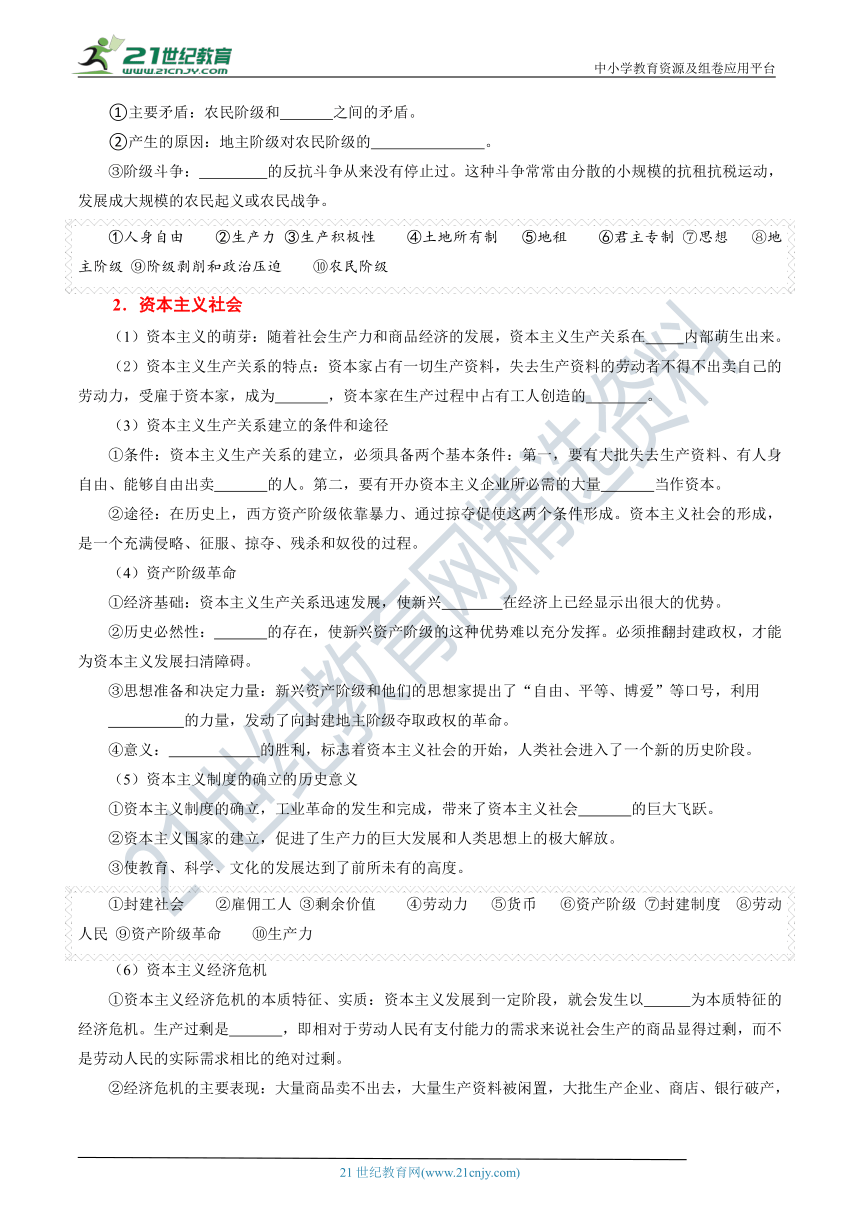 21世纪教育
WWW.21CNJY.COM
中小学教育资源及组卷应用平台
①主要矛盾：农民阶级和_______之间的矛盾。
②产生的原因：地主阶级对农民阶级的_______________。
③阶级斗争：_________的反抗斗争从来没有停止过。这种斗争常常由分散的小规模的抗租抗税运动，
发展成大规模的农民起义或农民战争。
①人身自由 ②生产力 ③生产积极性 ④土地所有制 ⑤地租 ⑥君主专制 ⑦思想 ⑧地
主阶级 ⑨阶级剥削和政治压迫 ⑩农民阶级
2．资本主义社会
（1）资本主义的萌芽：随着社会生产力和商品经济的发展，资本主义生产关系在_____内部萌生出来。
（2）资本主义生产关系的特点：资本家占有一切生产资料，失去生产资料的劳动者不得不出卖自己的
劳动力，受雇于资本家，成为_______，资本家在生产过程中占有工人创造的________。
（3）资本主义生产关系建立的条件和途径
①条件：资本主义生产关系的建立，必须具备两个基本条件：第一，要有大批失去生产资料、有人身
自由、能够自由出卖_______的人。第二，要有开办资本主义企业所必需的大量_______当作资本。
②途径：在历史上，西方资产阶级依靠暴力、通过掠夺促使这两个条件形成。资本主义社会的形成，
是一个充满侵略、征服、掠夺、残杀和奴役的过程。
（4）资产阶级革命
①经济基础：资本主义生产关系迅速发展，使新兴________在经济上已经显示出很大的优势。
②历史必然性：_______的存在，使新兴资产阶级的这种优势难以充分发挥。必须推翻封建政权，才能
为资本主义发展扫清障碍。
③思想准备和决定力量：新兴资产阶级和他们的思想家提出了“自由、平等、博爱”等口号，利用
__________的力量，发动了向封建地主阶级夺取政权的革命。
④意义：____________的胜利，标志着资本主义社会的开始，人类社会进入了一个新的历史阶段。
（5）资本主义制度的确立的历史意义
①资本主义制度的确立，工业革命的发生和完成，带来了资本主义社会_______的巨大飞跃。
②资本主义国家的建立，促进了生产力的巨大发展和人类思想上的极大解放。
③使教育、科学、文化的发展达到了前所未有的高度。
①封建社会 ②雇佣工人 ③剩余价值 ④劳动力 ⑤货币 ⑥资产阶级 ⑦封建制度 ⑧劳动
人民 ⑨资产阶级革命 ⑩生产力
（6）资本主义经济危机
①资本主义经济危机的本质特征、实质：资本主义发展到一定阶段，就会发生以______为本质特征的
经济危机。生产过剩是_______，即相对于劳动人民有支付能力的需求来说社会生产的商品显得过剩，而不
是劳动人民的实际需求相比的绝对过剩。
②经济危机的主要表现：大量商品卖不出去，大量生产资料被闲置，大批生产企业、商店、银行破产，
21世纪教育网精选资料
21世纪教育网(www.21cnjy.com)